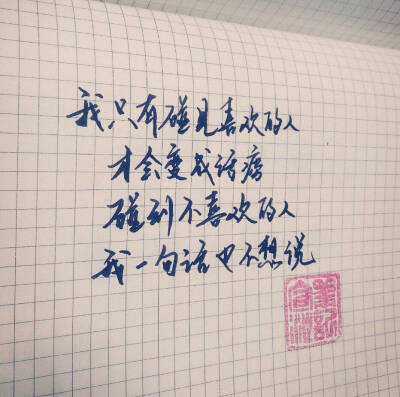 我只有碰见喜欢的人
才会变成话痨
碰到不喜欢的人
我一句话也不想说